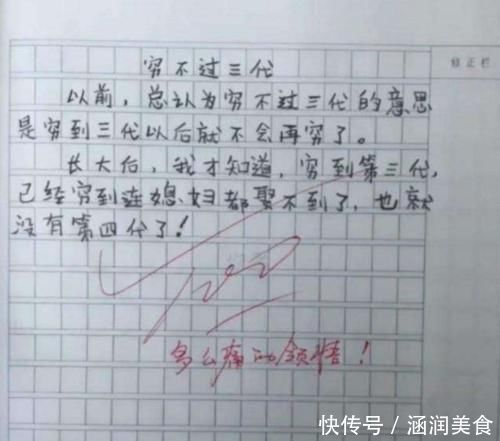 穷不过三代
修正栏
以前，总认为穷不过三代的意思
是穷到三代以后就不会再穷了。
长大后，我才知道，穷到第三代，
已经穷到连媳妇都娶不到了，也就
没有第四代了！
100
多么痛的领悟！
快传号／涵润美食